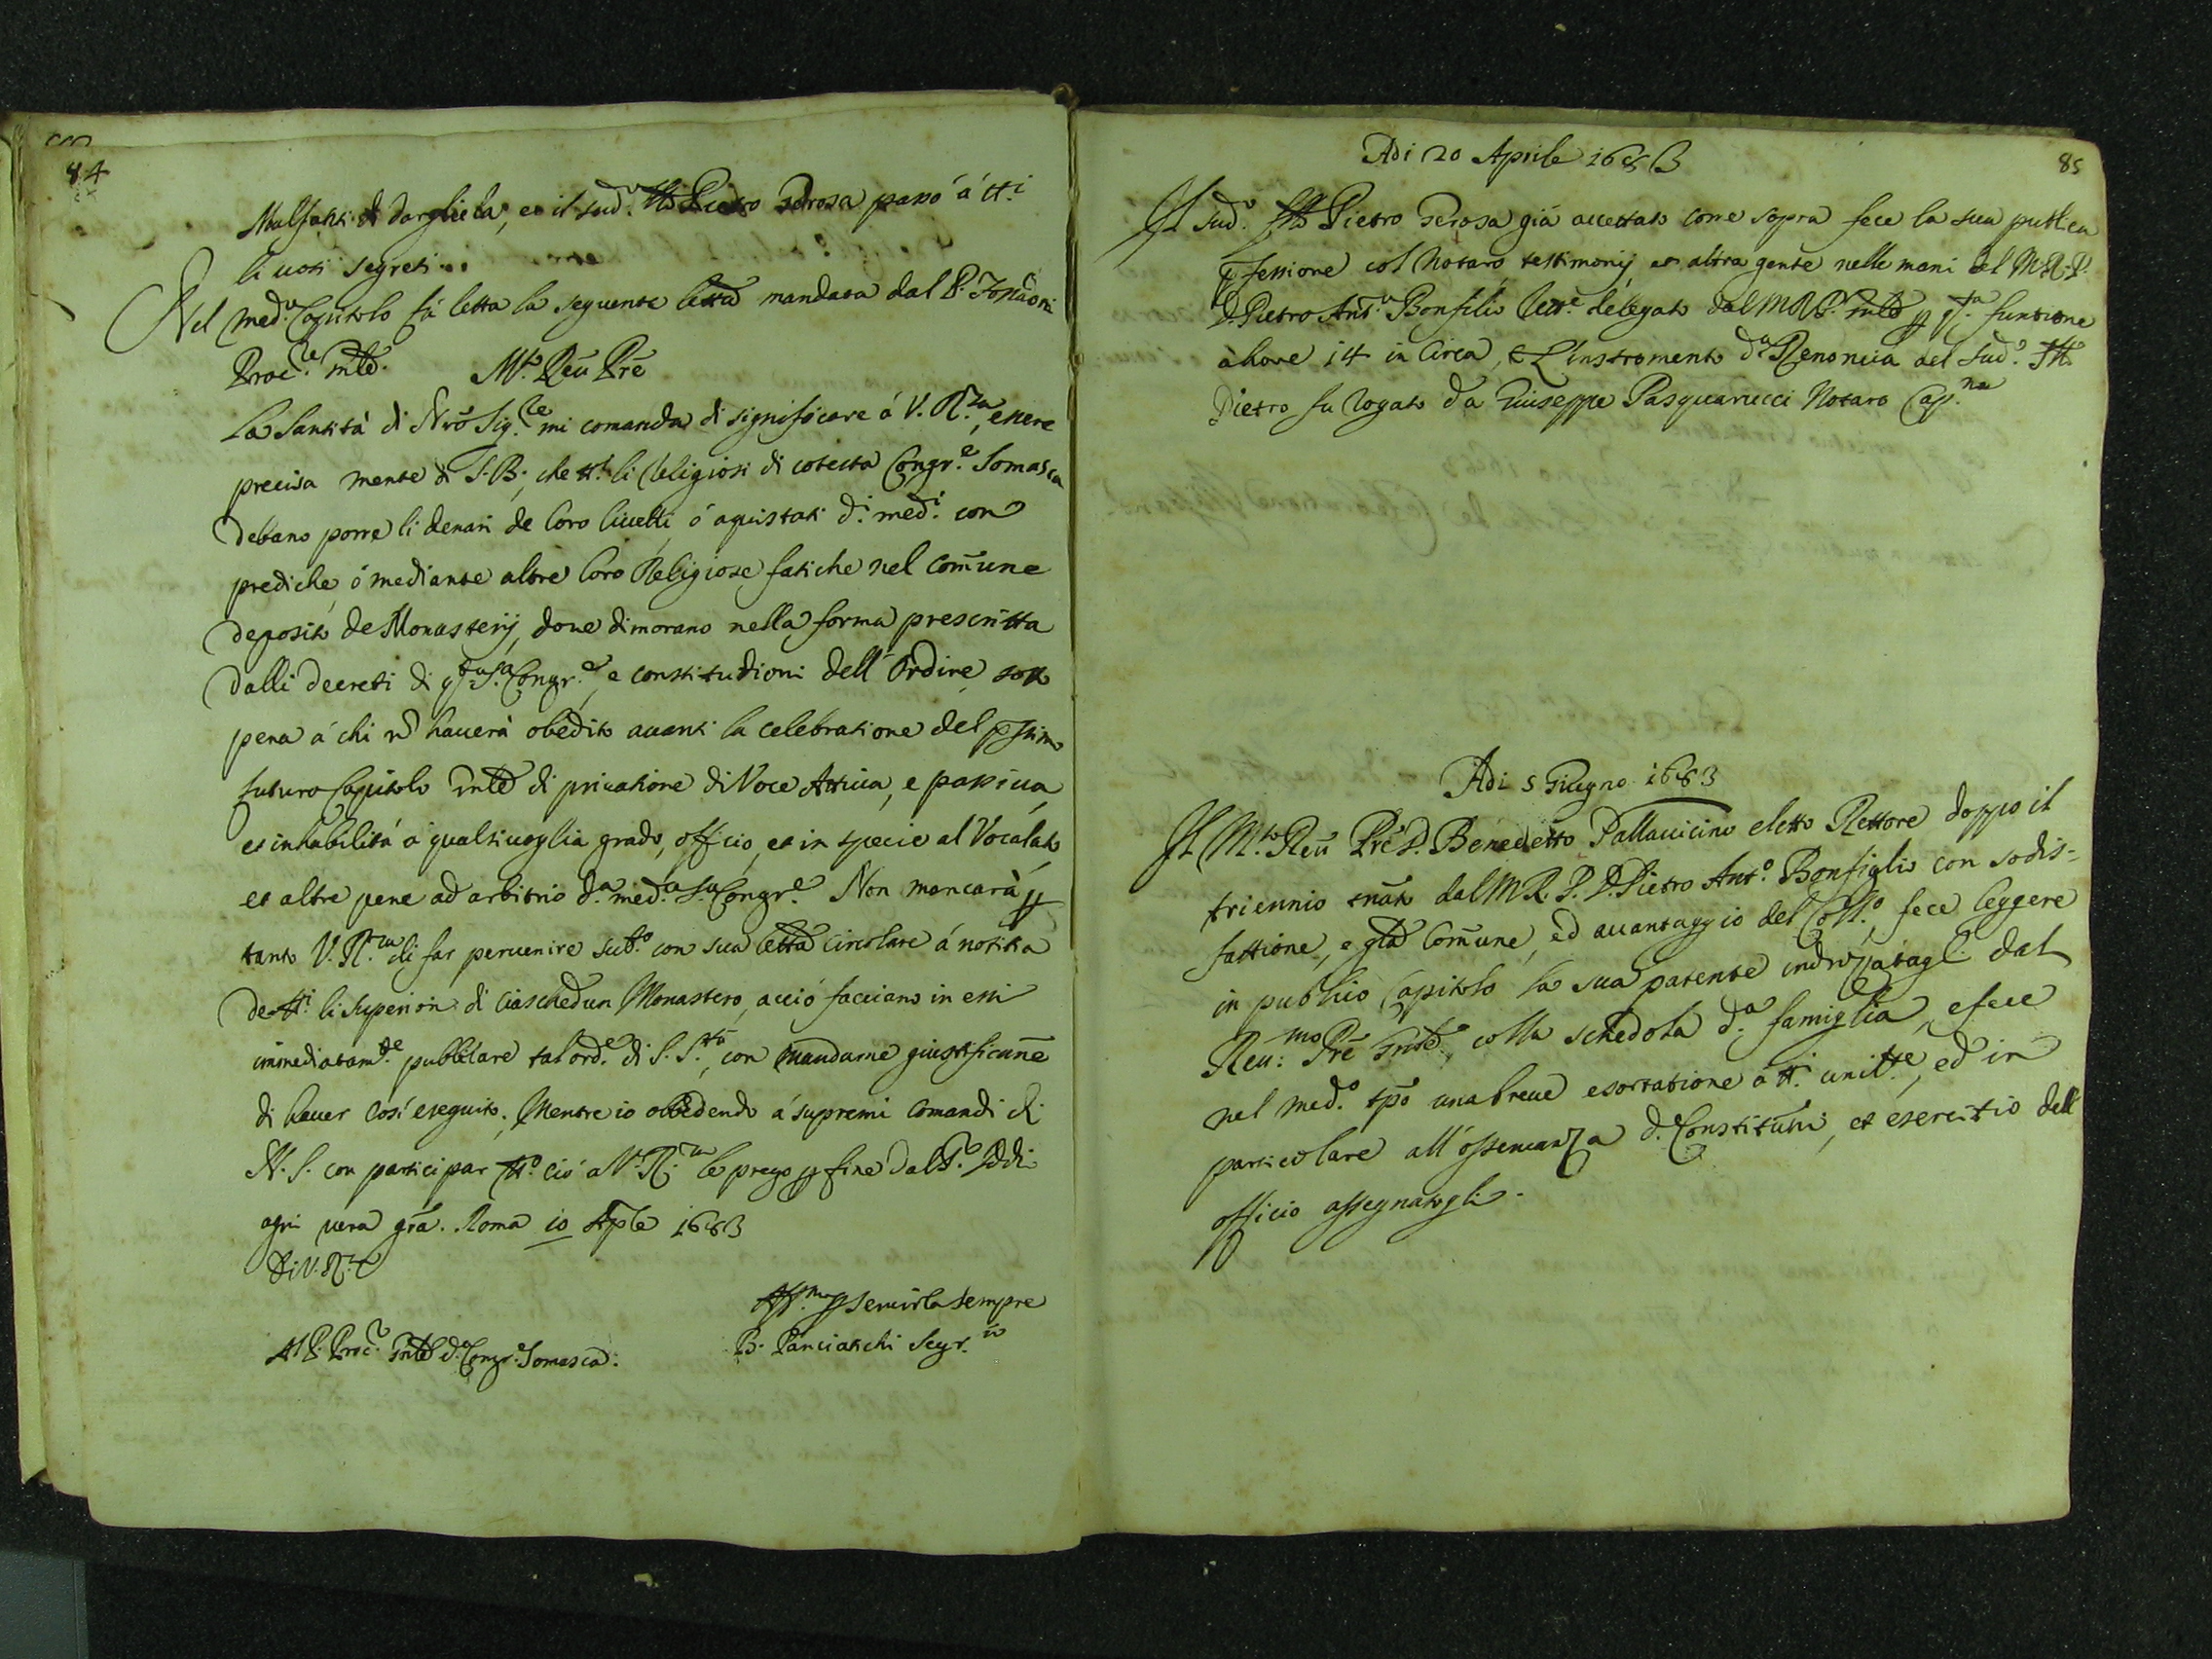 84
Malfanti di dargliela, et il sud.o Fr. Pietro Perosa passò á tt.i
li uoti segreti.
Nel med.o Capitolo fú letta la seguente letta mandata dal P.
Proc.re Gnle. M.to Reu Pre
La Santità di Nro Sig.re mi comanda di significare á V. R.za, essere
precisa mente di S. B., che tt.i li Religiosi di cotesta Congr.e Somasca
debano porre li denari de loro liuelli, ó aquistati d.i med.i con
prediche, ó mediante altre loro Religiose fatiche nel comune
deposito de Monasterij, doue dimorano nella forma prescritta
dalli decreti di q.ta S.a Congr.e, e constitutioni dell'Ordine, sotto
pena á chi n hauerà obedito auanti la celebratione del pssimo
futuro Capitolo Gnle di priuatione di Voce Attiua, e passiua,
et inhabilitá á qualsiuoglia grado, officio, et in specie al Vocalato,
et altre pene ad arbitrio d.a med.a S.a Congr.e Non mancarà p
tanto V. R.za di far peruenire sub.o con sua letta circolare á notitia
de tt.i li Superiori di ciaschedun Monastero, acció facciano in essi
immediatam.te publicare tal ord.e di S. S.tà, con mandarne giustificane
di hauer cosí eseguito. Mentre io obedendo á supremi comandi di
N. S. con participar tt.o ció a V. R.za le prego p fine dal S.r Iddio
ogni uera gra. Roma 10 Aple 1683
Di V. R.za
Aff.mo p seruirla sempre
B. Panciatichi Segr.io
Al P. Proc.re Gnle d.a Congr.e Somasca.
85
Adi 20 Aprile 1683
Il sud.o Fr. Pietro Perosa giá accettato come sopra fece la sua publica
pfessione col Notaro testimonij et altra gente nelle mani del M. R. P.
D. Pietro Ant.o Bonfilio Rett.e delegato dal M. R. P. Gnle p q.ta funtione
á hore 14 in circa, e L'instromento d.a Renoncia del sud.o Fr.
Pietro fu rogato da Giuseppe Pasquarucci Notaro Cap.no
Adi 5 Giugno 1683
Il M.to Reu Pre D. Benedetto Pallauicino eletto Rettore doppo il
triennio tnato dal M. R. P. D. Pietro Ant.o Bonfiglio con sodis=
fattione, e gla comune, ed auantaggio del Coll.o fece leggere
in publico Capitolo la sua patente indrizzatagli dal
Reu.mo Pre Gnle, colla schedola d.a famiglia, e fece
nel med.o tpo una breue esortatione á tt.i unit.te, ed in
particolare all'osseruanza d.e Constituni, et esercitio dell'
officio assegnatogli.